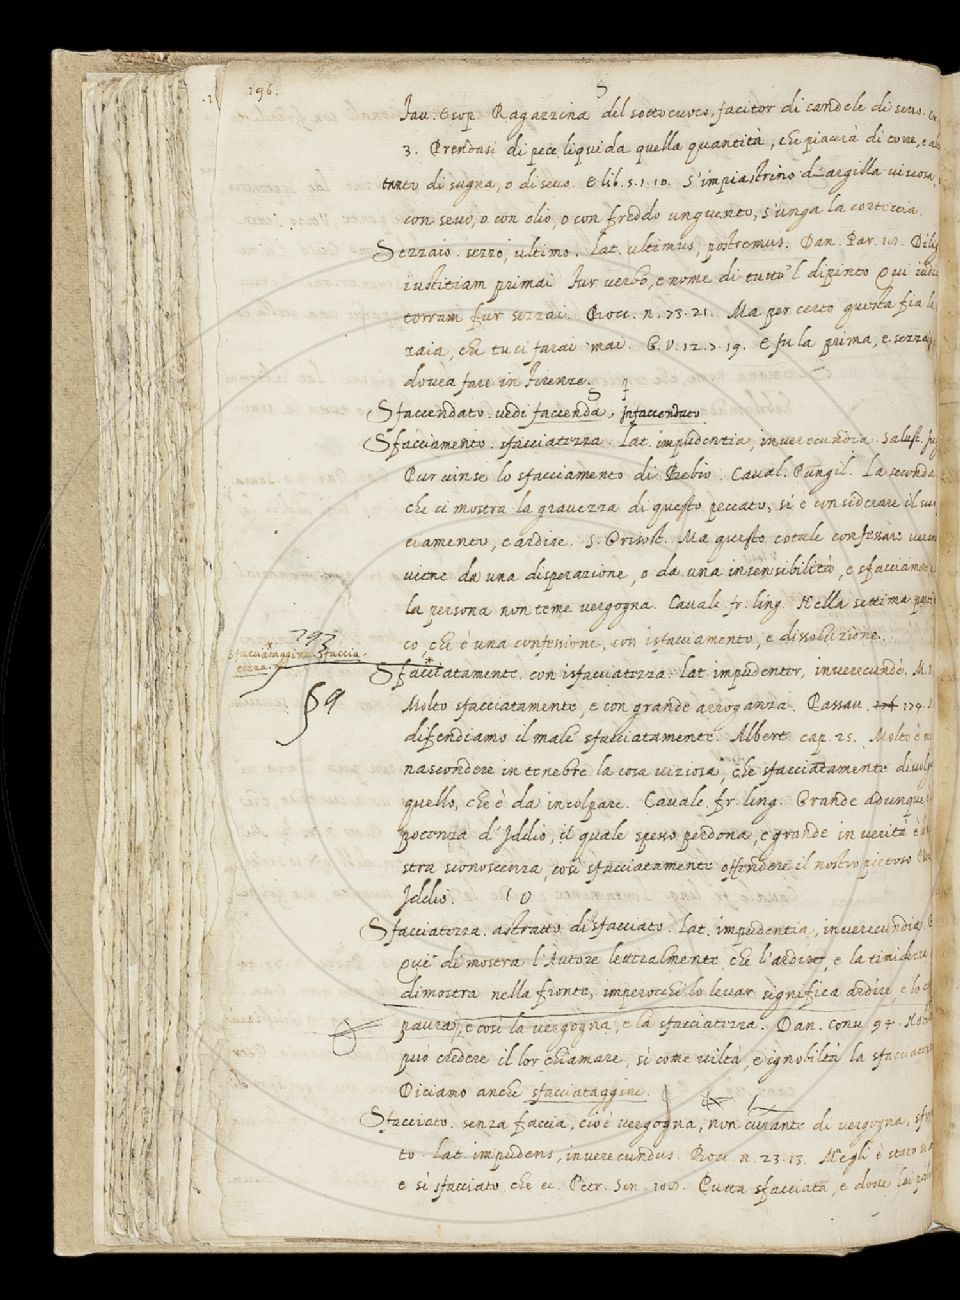 196.
S
Fav. Esop. Ragazzina del sottocuoco, facitor di candele di sevo. Cr.
3. Prendasi di pece liquida quella quantità, che piacerà di torre, e al
tanto di sugna, o di sevo. E lib. 5. 1. 10. S'impiastrino d'argilla viscosa,
con sevo, o con olio, o con freddo unguento, s'unga la corteccia.
Sezzaio. sezzo, ultimo. lat. ultimus, postremus. Dan. Par. 18. Dilig
iustitiam primai fur verbo, e nome di tutto 'l dipinto Qui iudic
terram fur sezzai. Bocc. n. 73. 21. Ma per certo questa fia la
zaia, che tu ci farai mai. G. V. 12. 7. 19. E fu la prima, e sezza
dovea fare in Firenze.
Sfaccendato. vedi faccenda, S infaccendato
Sfacciamento. sfacciatezza. lat. impudentia, inverecundia. Salust. Ju
Pur vinse lo sfacciamento di Bebio. Caval. Pungil. La seconda
che ci mostra la gravezza di questo peccato, si è considerare il suo
ciamento, e ardire. S. Grisost. Ma questo cotale confessare
viene da una disperazione, o da una insensibilità, e sfacciamen
la persona non teme vergogna. Cavalc. fr. ling. Nella settima
co, che è una confessione, con isfacciamento, e dissoluzione.
293
Sfacciataggine. Sfaccia-
tezza.
Sfacciatamente. con isfacciatezza. lat. impudenter, inverecundè. M.
§ 9
Molto sfacciatamente, e con grande arroganza. Passav. 179.
difendiamo il male sfacciatamente. Albert. cap. 25. Molto è
nascondere in tenebre la cosa viziosa, che sfacciatamente
quello, che è da incolpare. Cavalc. fr. ling. Grande adunque
pacenza d'Iddio, il quale spesso perdona, e grande in verità è
stra sconoscenza, così sfacciatamente offendere il nostro pietoso
Iddio.
Sfacciatezza. astratto di sfacciato. lat. impudentia, inverecundia
Qui dimostra l'Autore letteralmente, che l'ardire, e la timidezza
dimostra nella fronte, imperocchè lo levar significa ardire, e lo
paura, e così la vergogna, e la sfacciatezza. Dan. Conv. 94.
può credere il lor chiamare, sì come viltà, e ignobiltà la sfacciatezza
Diciamo anche sfacciataggine.
Sfacciato. senza faccia, cioè vergogna, non curante di vergogna,
to. lat. impudens, inverecundus. Bocc. n. 23. 13. Negli è stato
e sì sfacciato, che ec. Petr. Son. 108. Putta sfacciata, e dove hai